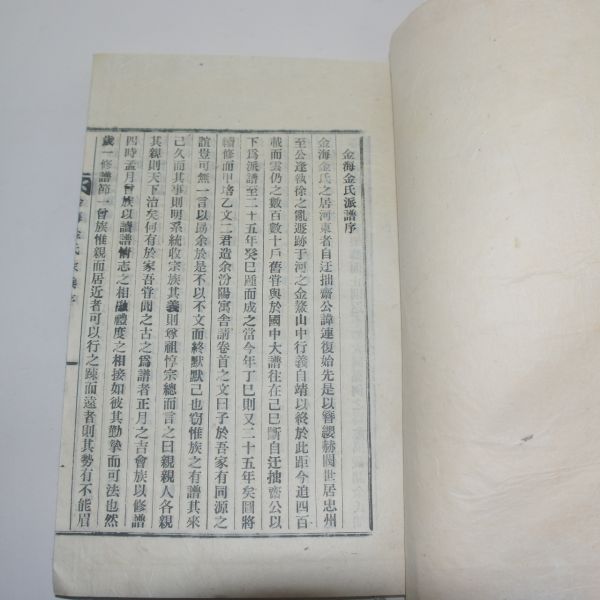 金海金氏派譜序
金海金氏之居河東者自迂拙齋公諱連復始先是以簪纓赫閥世居忠州
至公逢執徐之亂遯跡于河之金鰲山中行義自靖以終於此距今追四百
載而雲仍之數百數十戶舊嘗與於國中大譜往在己巳斷自迂拙齋公以
下爲派譜至二十五年癸巳踵而成之當今年丁巳則又二十五年矣圖將
續修而甲培乙文二君造余汾陽寓舍請卷首之文曰子於吾家有同源之
誼豈可無一言以爲余於是不以不文而終默默已也竊惟族之有譜其來
已久而其事則明系統收宗族其義則尊祖惇宗總而言之曰親親人各親
其親則天下治矣何有於家吾嘗聞之古之爲譜者正月之吉會族以修譜
四時孟月會族以讀譜情志之相融禮度之相接如彼其勤摯而可法也然
歲一修譜節一會族惟親而居近者可以行之疎而遠者則其勢有不能眉
金海金氏派譜序